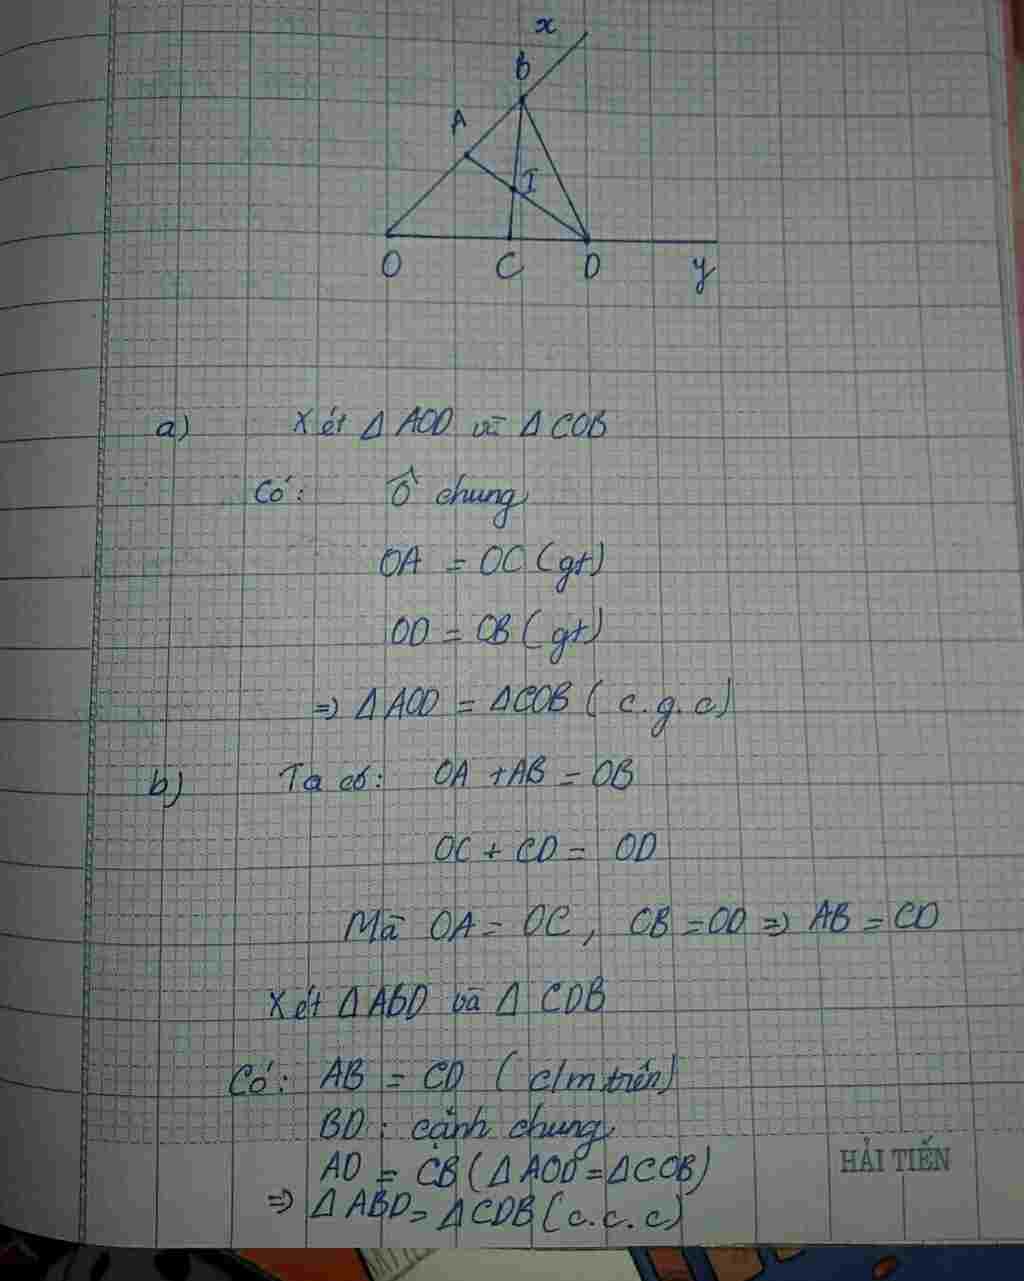 x
B
A
I
O C D y
a) Xét Δ AOD và Δ COB
Có: Ô chung
OA = OC (gt)
OD = OB (gt)
=> Δ AOD = Δ COB ( c.g.c)
b) Ta có: OA + AB = OB
OC + CD = OD
Mà OA = OC , OB = OD => AB = CD
Xét Δ ABD và Δ CDB
Có: AB = CD ( c/m trên)
BD : cạnh chung
AD = CB ( Δ AOD = Δ COB)
HẢI TIẾN
=> Δ ABD = Δ CDB ( c.c.c)